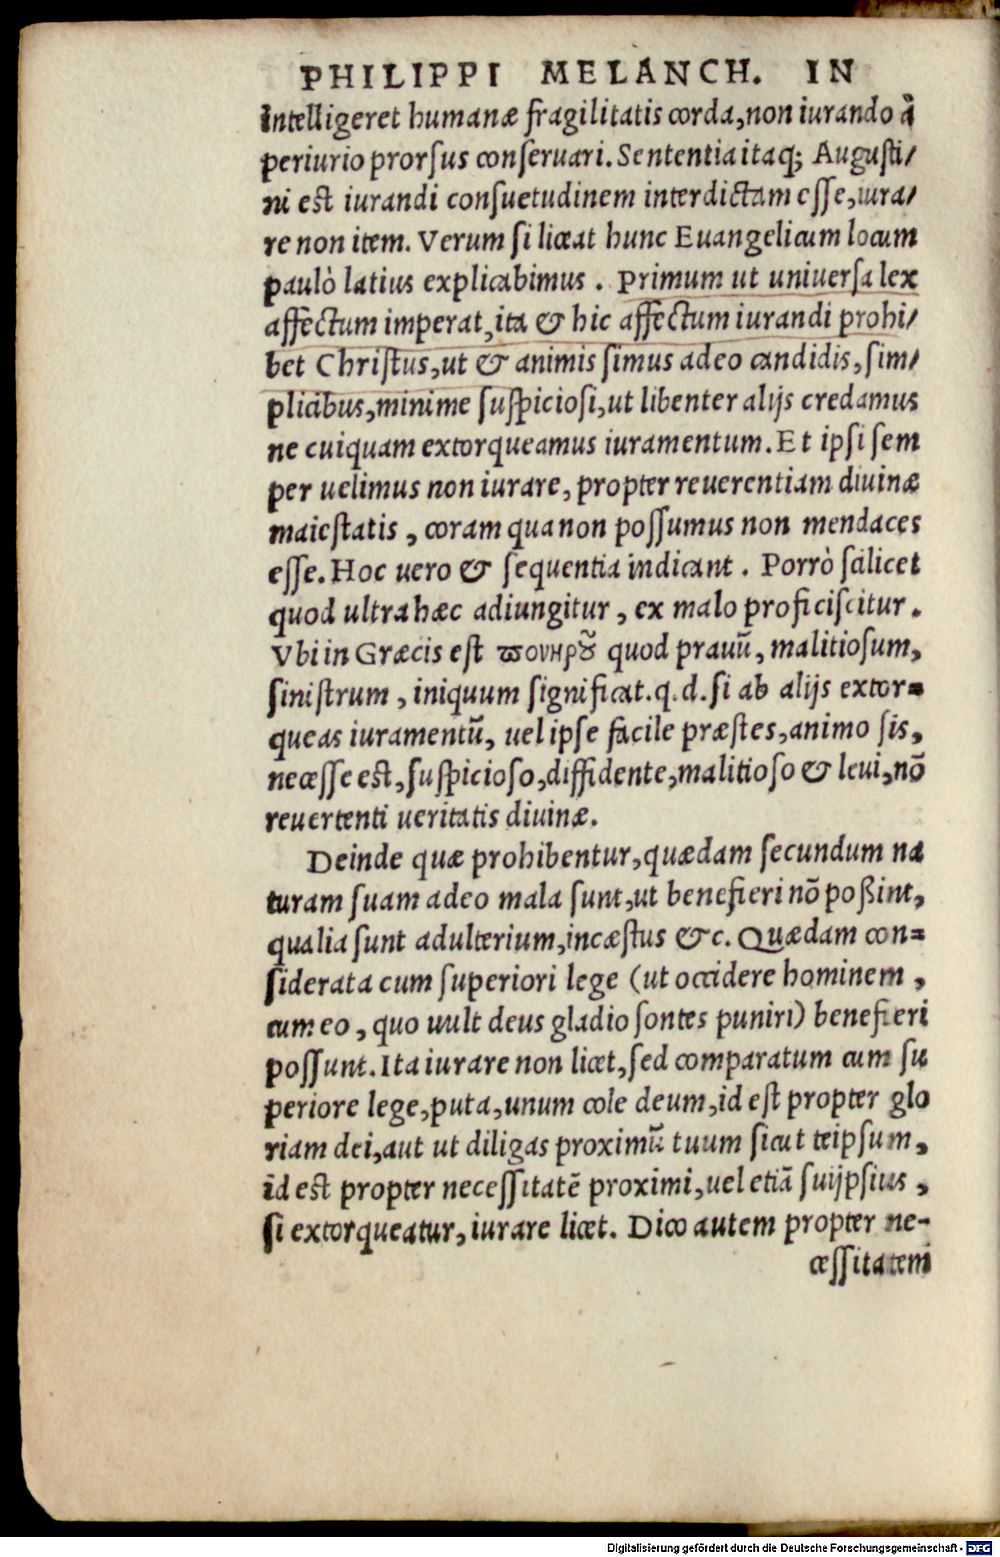 PHILIPPI MELANCH. IN
intelligeret humanæ fragilitatis corda, non iurando à
periurio prorſus conſeruari. Sententia itaq; Auguſti/
ni eſt iurandi conſuetudinem interdictam eſſe, iura/
re non item. Verum ſi liceat hunc Euangelicum locum
paulò latius explicabimus. Primum ut uniuerſa lex
affectum imperat, ita & hic affectum iurandi prohi/
bet Chriſtus, ut & animis ſimus adeo candidis, ſim/
plicibus, minime ſuſpicioſi, ut libenter alijs credamus
ne cuiquam extorqueamus iuramentum. Et ipſi ſem
per uelimus non iurare, propter reuerentiam diuinæ
maieſtatis, coram qua non poſſumus non mendaces
eſſe. Hoc uero & ſequentia indicant. Porrò ſcilicet
quod ultra hæc adiungitur, ex malo proficiſcitur.
Vbi in Græcis eſt πονηρȣ͂ quod prauū, malitioſum,
ſiniſtrum, iniquum ſignificat. q. d. ſi ab alijs extor=
queas iuramentū, uel ipſe facile præſtes, animo ſis,
neceſſe eſt, ſuſpicioſo, diffidente, malitioſo & leui, nō
reuertenti ueritatis diuinæ.
Deinde quæ prohibentur, quædam ſecundum na
turam ſuam adeo mala ſunt, ut benefieri nō poßint,
qualia ſunt adulterium, incæſtus &c. Quædam con=
ſiderata cum ſuperiori lege (ut occidere hominem,
cum eo, quo uult deus gladio ſontes puniri) benefieri
poſſunt. Ita iurare non licet, ſed comparatum cum ſu
periore lege, puta, unum cole deum, id eſt propter glo
riam dei, aut ut diligas proximū tuum ſicut teipſum,
id eſt propter neceſſitatē proximi, uel etiā ſuijpſius,
ſi extorqueatur, iurare licet. Dico autem propter ne-
ceſſitatem
Digitalisierung gefördert durch die Deutsche Forschungsgemeinschaft - DFG